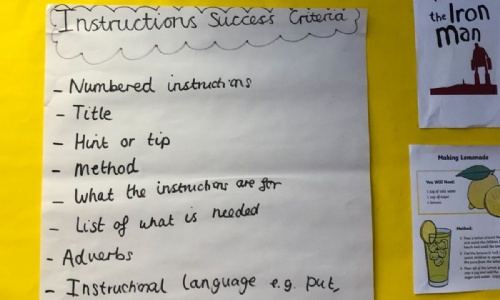 Instructions Success Criteria
- Numbered instructions
- Title
- Hint or tip
- Method
- What the instructions are for
- List of what is needed
- Adverbs
- Instructional language e.g. put,
the Iron
Man
Making Lemonade
You Will Need:
Method: